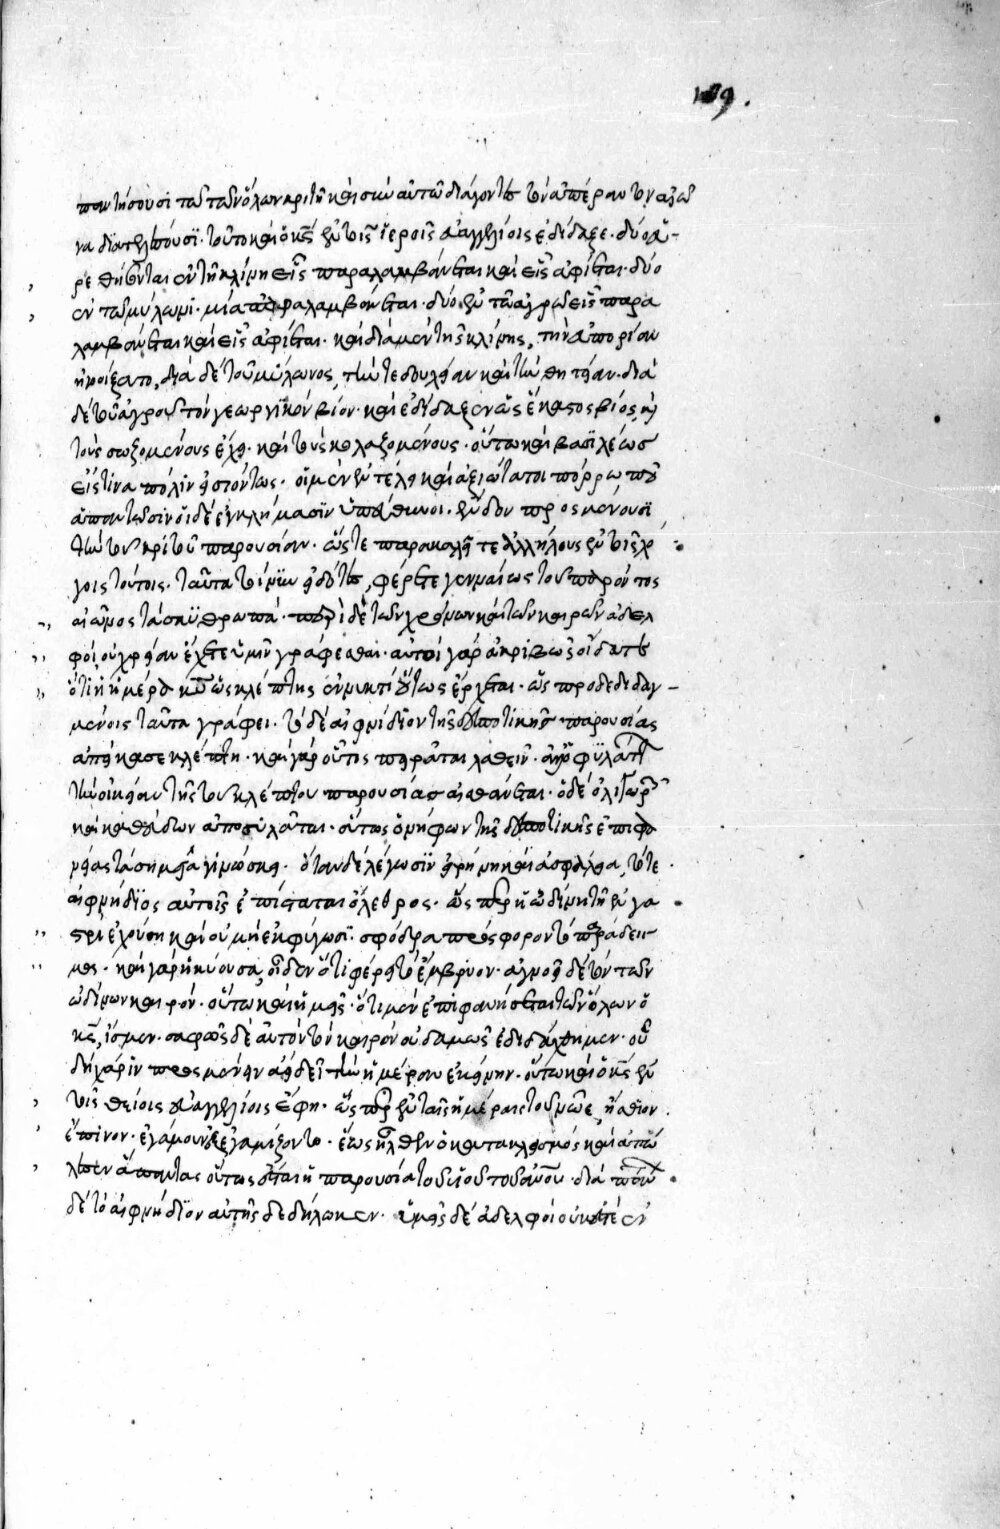 189.
παντήσουσι τῶ τῶν ὅλων κριτῆ καὶ σὺν αὐτῶ διάγοντες τὸν ἀπέραντον αἰῶ
να διατελέσουσι. τοῦτο καὶ ὁ κς ἐν τοῖς ἱεροῖς εὐαγγελίοις ἐδίδαξε. δύο εὑ-
ρεθήσονται ἐν τῆ κλίνη εἷς παραλαμβάνεται καὶ εἷς ἀφίεται. δύο
ἐν τῶ μύλωνι. μία παραλαμβάνεται. δύο ἐν τῶ ἀγρῶ εἷς παρα
λαμβάνεται καὶ εἷς ἀφίεται. καὶ διὰ μὲν τῆς κλίνης, τὴν εὐπορίαν
ἠνίξατο, διὰ δὲ τοῦ μύλωνος, τήν τε δουλείαν καὶ τὴν θητείαν. διὰ
δὲ τοῦ ἀγροῦ τὸν γεωργικὸν βίον. καὶ ἐδίδαξεν ὡς ἕκαστος βίος καὶ
τοὺς σωζομένους ἔχει. καὶ τοὺς κολαζομένους. οὕτω καὶ βασιλέως
εἴς τινα πόλιν εἰσιόντος. οἱ μὲν ἐν τέλει καὶ ἀξιώτατοι πόρρω που
ἀπαντῶσιν οἱ δὲ ἐγκλήμασιν ὑπεύθυνοι. ἔνδον προσμένουσι
τὴν τοῦ κριτοῦ παρουσίαν. ὥστε παρακαλεῖτε ἀλλήλους ἐν τοῖς λό
γοις τούτοις. ταῦτα τοίνυν εἰδότες, φέρετε γενναίως τοῦ παρόντος
αἰῶνος τὰ σκυθρωπά. περὶ δὲ τῶν χρόνων καὶ τῶν καιρῶν ἀδελ
φοί, οὐ χρείαν ἔχετε ὑμῖν γράφεσθαι. αὐτοὶ γὰρ ἀκριβῶς οἴδατε
ὅτι ἡ ἡμέρα κυ ὡς κλέπτης ἐν νυκτὶ οὕτως ἔρχεται. ὡς προδεδιδαγ-
μένοις ταῦτα γράφει. τὸ δὲ αἰφνίδιον τῆς δεσποτικῆς παρουσίας
ἀπείκασε κλέπτη. καὶ γὰρ οὗτος πειρᾶται λαθεῖν. ἀλλ' ὁ φυλάττων
τὴν οἰκείαν τῆς τοῦ κλέπτου παρουσίας αἰσθάνεται. ὁ δὲ ὀλιγωρῶν
καὶ καθεύδων ἀποσυλᾶται. οὕτως ὁ νήφων τῆς δεσποτικῆς ἐπιφα
νείας τὰ σημεῖα γινώσκει. ὅταν δὲ λέγωσιν εἰρήνη καὶ ἀσφάλεια, τότε
αἰφνήδιος αὐτοῖς ἐπίσταται ὄλεθρος. ὥσπερ ἡ ὠδίνη τῆ ἐν γα
στρὶ ἐχούση καὶ οὐ μὴ ἐκφύγωσι. σφόδρα πρόσφορον τὸ παράδειγ
μα. καὶ γὰρ ἡ κύουσα, οἶδεν ὅτι φέρει τὸ ἔμβρυον. ἀγνοεῖ δὲ τὸν τῶν
ὠδίνων καιρόν. οὕτω καὶ ἡμεῖς. ὅτι μὲν ἐπιφανήσεται τῶν ὅλων ὁ
κς, ἴσμεν. σαφῶς δὲ αὐτὸν τὸν καιρὸν οὐδαμῶς ἐδιδάχθημεν. οὗ
δὴ χάριν προσμένειν ἀεὶ δεῖ τὴν ἡμέραν ἐκείνην. οὕτω καὶ ὁ κς ἐν
τοῖς θείοις εὐαγγελίοις ἔφη. ὥσπερ ἐν ταῖς ἡμέραις τοῦ νῶε, ἤσθιον
ἔπινον. ἐγάμουν ἐξεγαμίζοντο. ἕως ἦλθεν ὁ κατακλυσμὸς καὶ ἀπώ
λεσεν ἅπαντας οὕτως ἔσται ἡ παρουσία τοῦ υἱοῦ τοῦ ἀνου. διὰ πάντων
δὲ τὸ αἰφνήδιον αὐτῆς δεδήλωκεν. ὑμεῖς δὲ ἀδελφοὶ οὐκ ἐστὲ ἐν